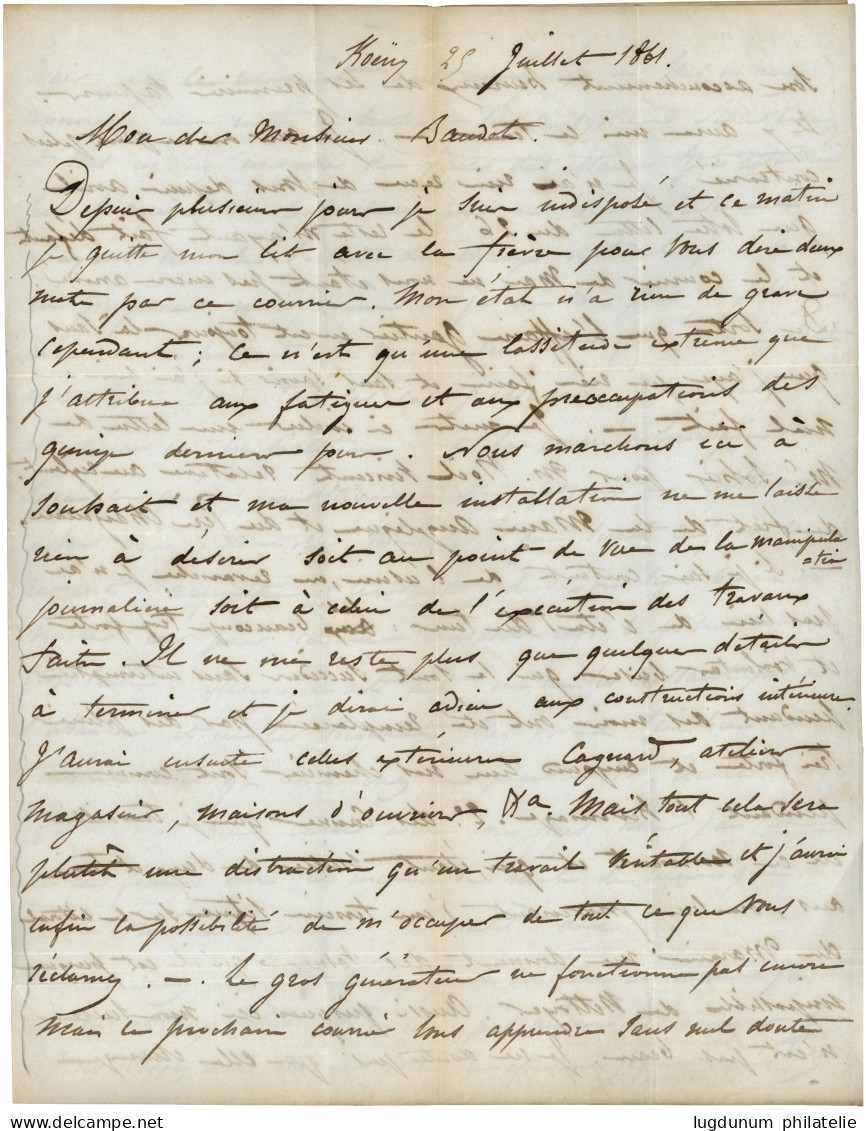 Koëny 25 Juillet 1861.
Mon cher Monsieur Baudot.
Depuis plusieurs jours je suis indisposé et ce matin
je quitte mon lit avec la fièvre pour vous dire deux
mots par ce courrier. Mon état n'a rien de grave
cependant ; ce n'est qu'une lassitude extrême que
j'attribue aux fatigues et aux préoccupations des
quinze derniers jours. Nous marchons ici à
souhait et ma nouvelle installation ne me laisse
rien à désirer soit au point de vue de la manipula
-tion
journalière soit à celui de l'exécution des travaux
faits. Il ne me reste plus que quelques détails
à terminer et je dirai adieu aux constructions intérieures.
J'aurai ensuite celles extérieures Cagnard, ateliers
magasins, maisons d'ouvriers, &a. Mais tout cela sera
plutôt une distraction qu'un travail véritable et j'aurai
enfin la possibilité de m'occuper de tout ce que vous
réclamez. —. Le gros générateur ne fonctionne pas encore
mais le prochain courrier vous apprendra sans nul doute
lugdunum philatelie